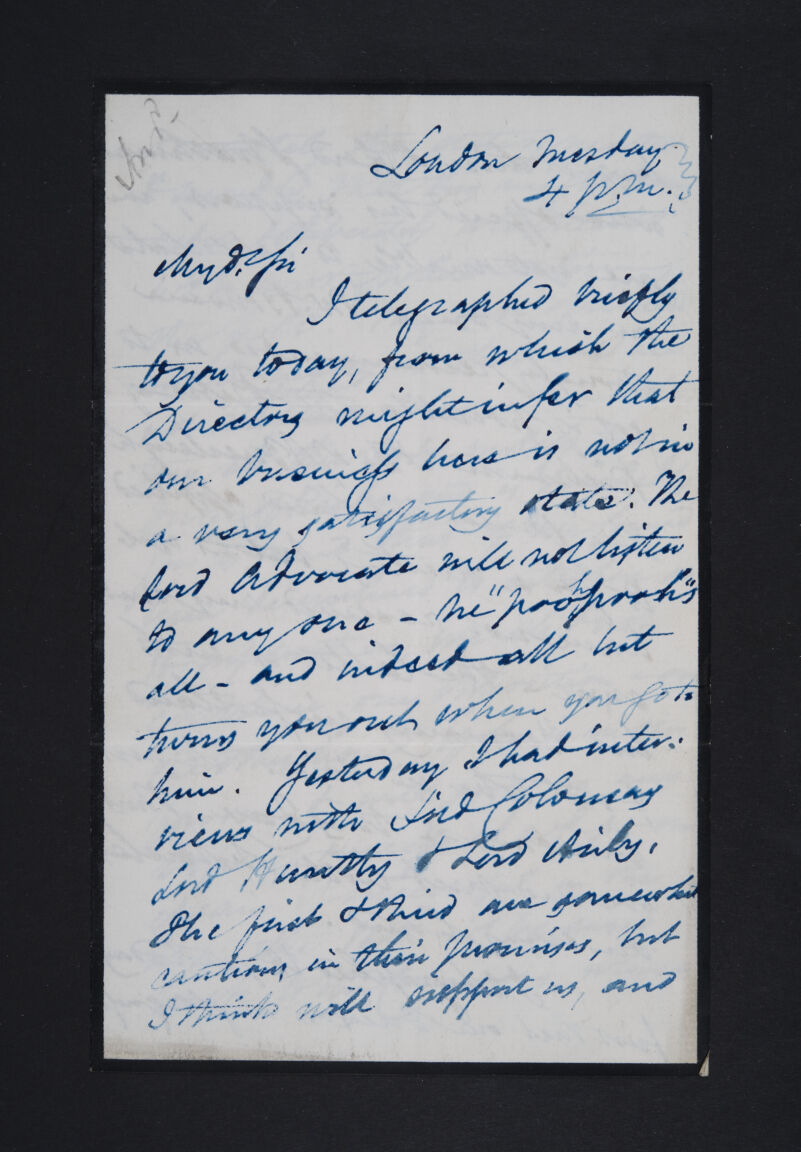 London Tuesday
4 p.m.
My dr Sir
I telegraphed briefly
to you today, from which the
Directors might infer that
our business here is not in
a very satisfactory state. The
Lord Advocate will not listen
to any one - he "pooh poohs"
all - and indeed all but
turns you out when you go to
him. Yesterday I had inter-
views with Lord Colonsay
Lord Huntly & Lord Airly.
The first & third are somewhat
cautious in their promises, but
I think will support us, and